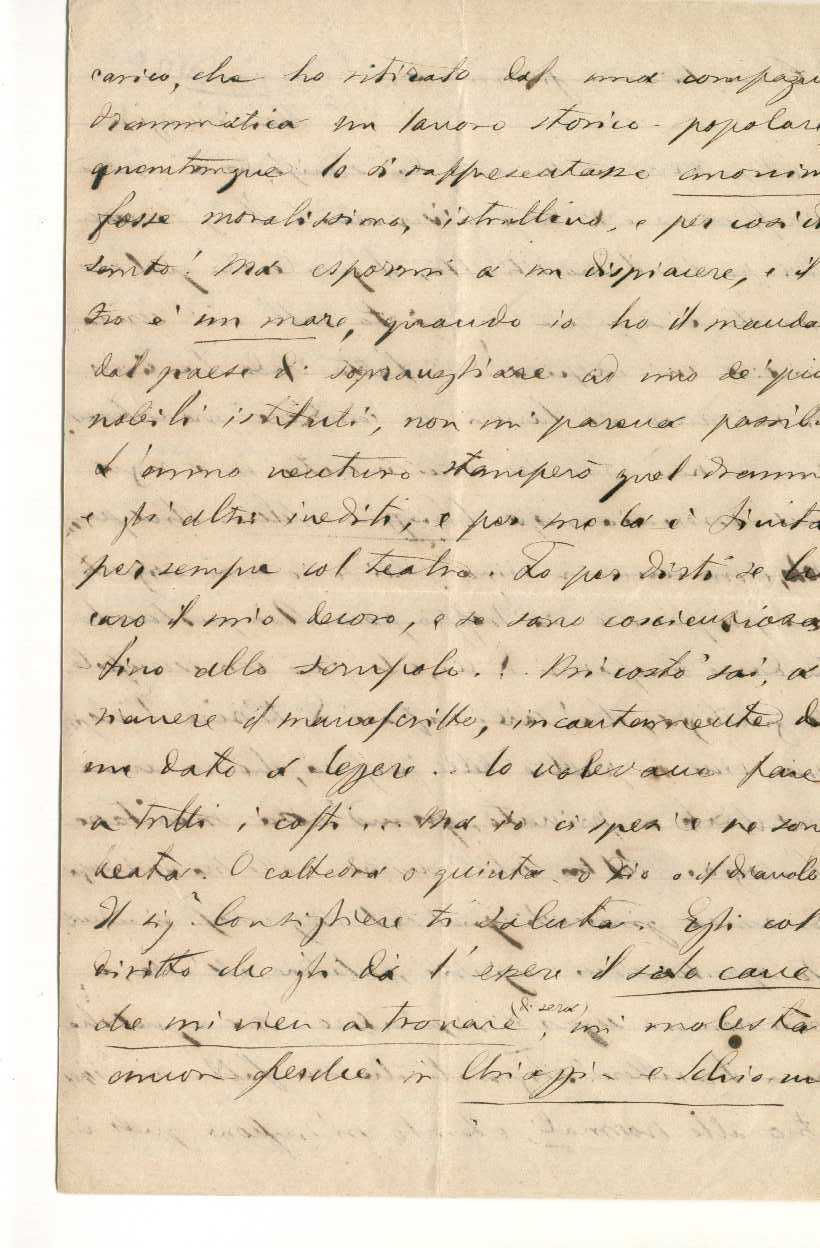 carico, che ho ritirato dal una compagn
drammatica un lavoro storico-popolare,
quantunque lo si rappresentasse anonim
fosse moralissimo, istruttivo, e per così d
santo! Ma espormi a un dispiacere, e il
tro è un mare, quando io ho il manda
dal paese di sopravegliare ad uno de' più
nobili istituti, non mi pareva possib
L'anno venturo stamperò quel dramm
e gli altri inediti, e per me la è finita
per sempre col teatro. Io per dirti se ho
caro il mio decoro, e se sono coscienziosa
fino allo scrupolo.! Mi costò sai, a
riavere il manoscritto, incautamente d
me dato a leggere... lo volevano fare
a tutti i costi... Ma io ci spesi e ne son
beata. O cattedra o quinta, o Dio o il diavolo
Il sig.r Consigliere ti saluta. Egli col
diritto che gli dà l'essere il solo cane
che mi vien a trovare (di sera), mi molesta
ancor perchè in